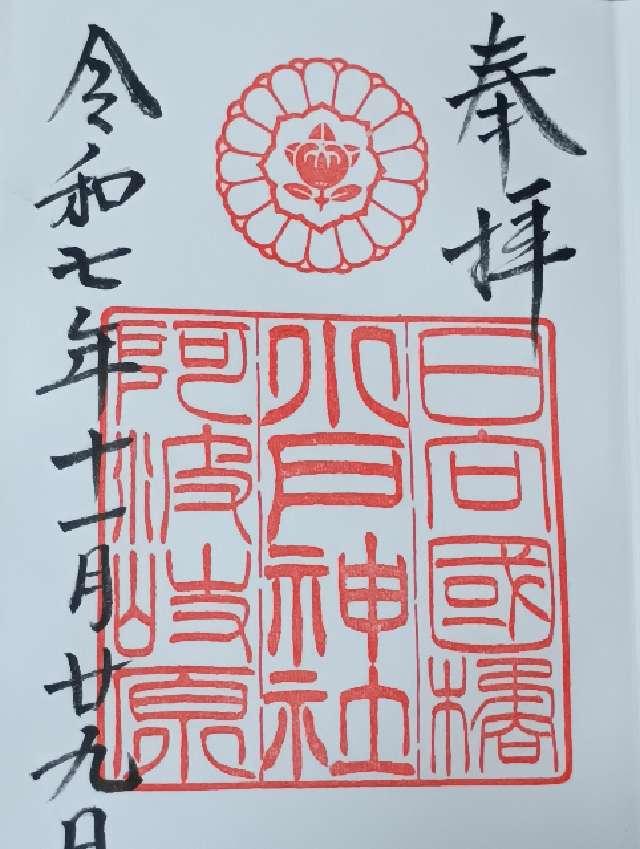 奉拝
日向國橘
小戸神社
阿波岐原
令和七年十一月廿九日